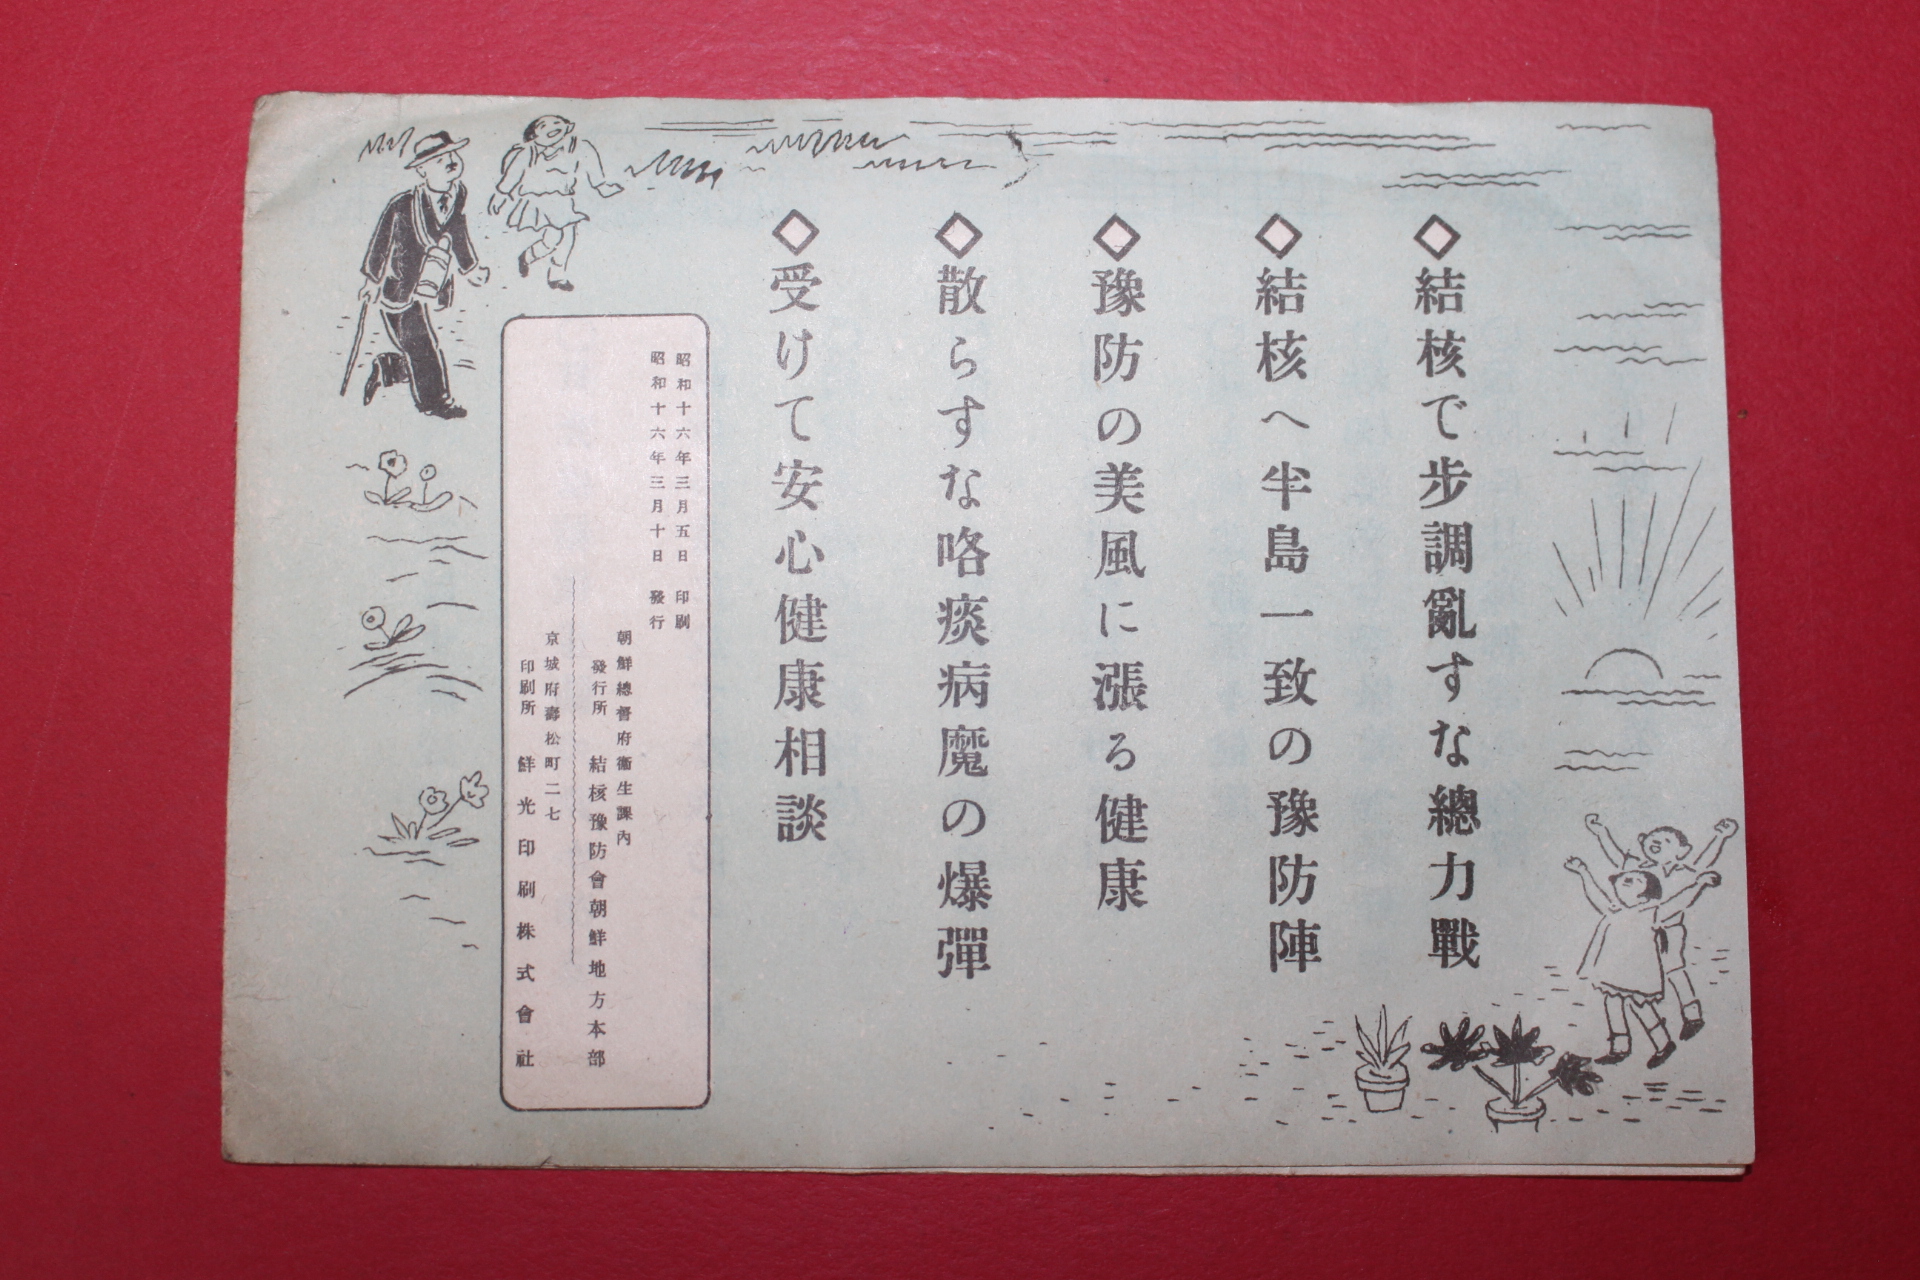 ◇結核で步調亂すな總力戰
◇結核へ半島一致の豫防陣
◇豫防の美風に漲る健康
◇散らすな咯痰病魔の爆彈
◇受けて安心健康相談
昭和十六年三月五日 印刷
昭和十六年三月十日 發行
朝鮮總督府衞生課內
發行所 結核豫防會朝鮮地方本部
京城府壽松町二七
印刷所 鮮光印刷株式會社